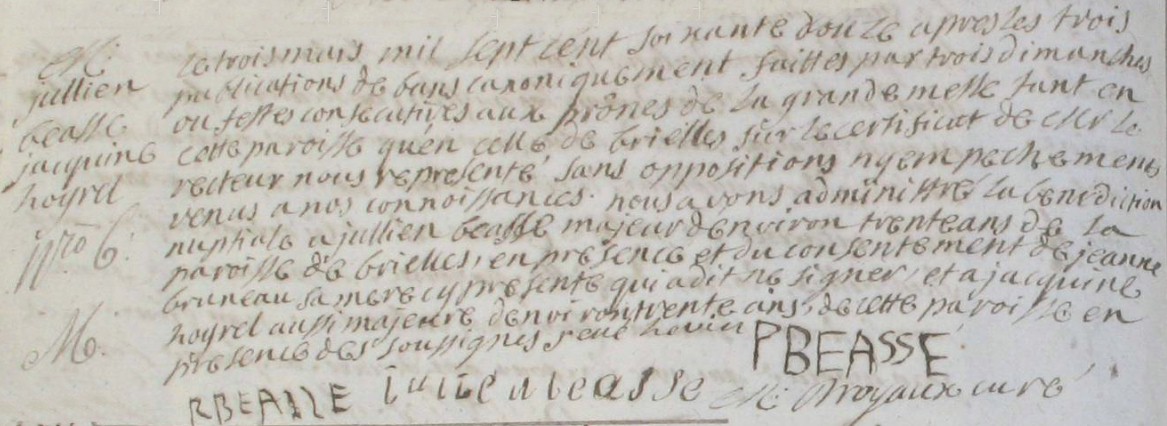 M.
jullien
beasse
jacquine
hoyrel
M.
le trois mars mil sept cent soixante douze apres les trois
publications de bans canoniquement faittes par trois dimanches
ou festes consecutives aux prônes de la grande messe tant en
cette paroisse qu'en celle de brielles sur le certificat de Mr le
recteur nous représenté sans oppositions ny empechements
venus a nos connoissances. nous avons administré la benediction
nuptiale a jullien beasse majeur denviron trente ans de la
paroisse de brielles, en présence et du consentement de jeanne
bruneau sa mere cy presente qui a dit ne signer, et a jacquine
hoyrel aussi majeure denviron trente ans, de cette paroisse en
présence des soussignés rené
PBEASSE
RBEASSE julien beasse curé